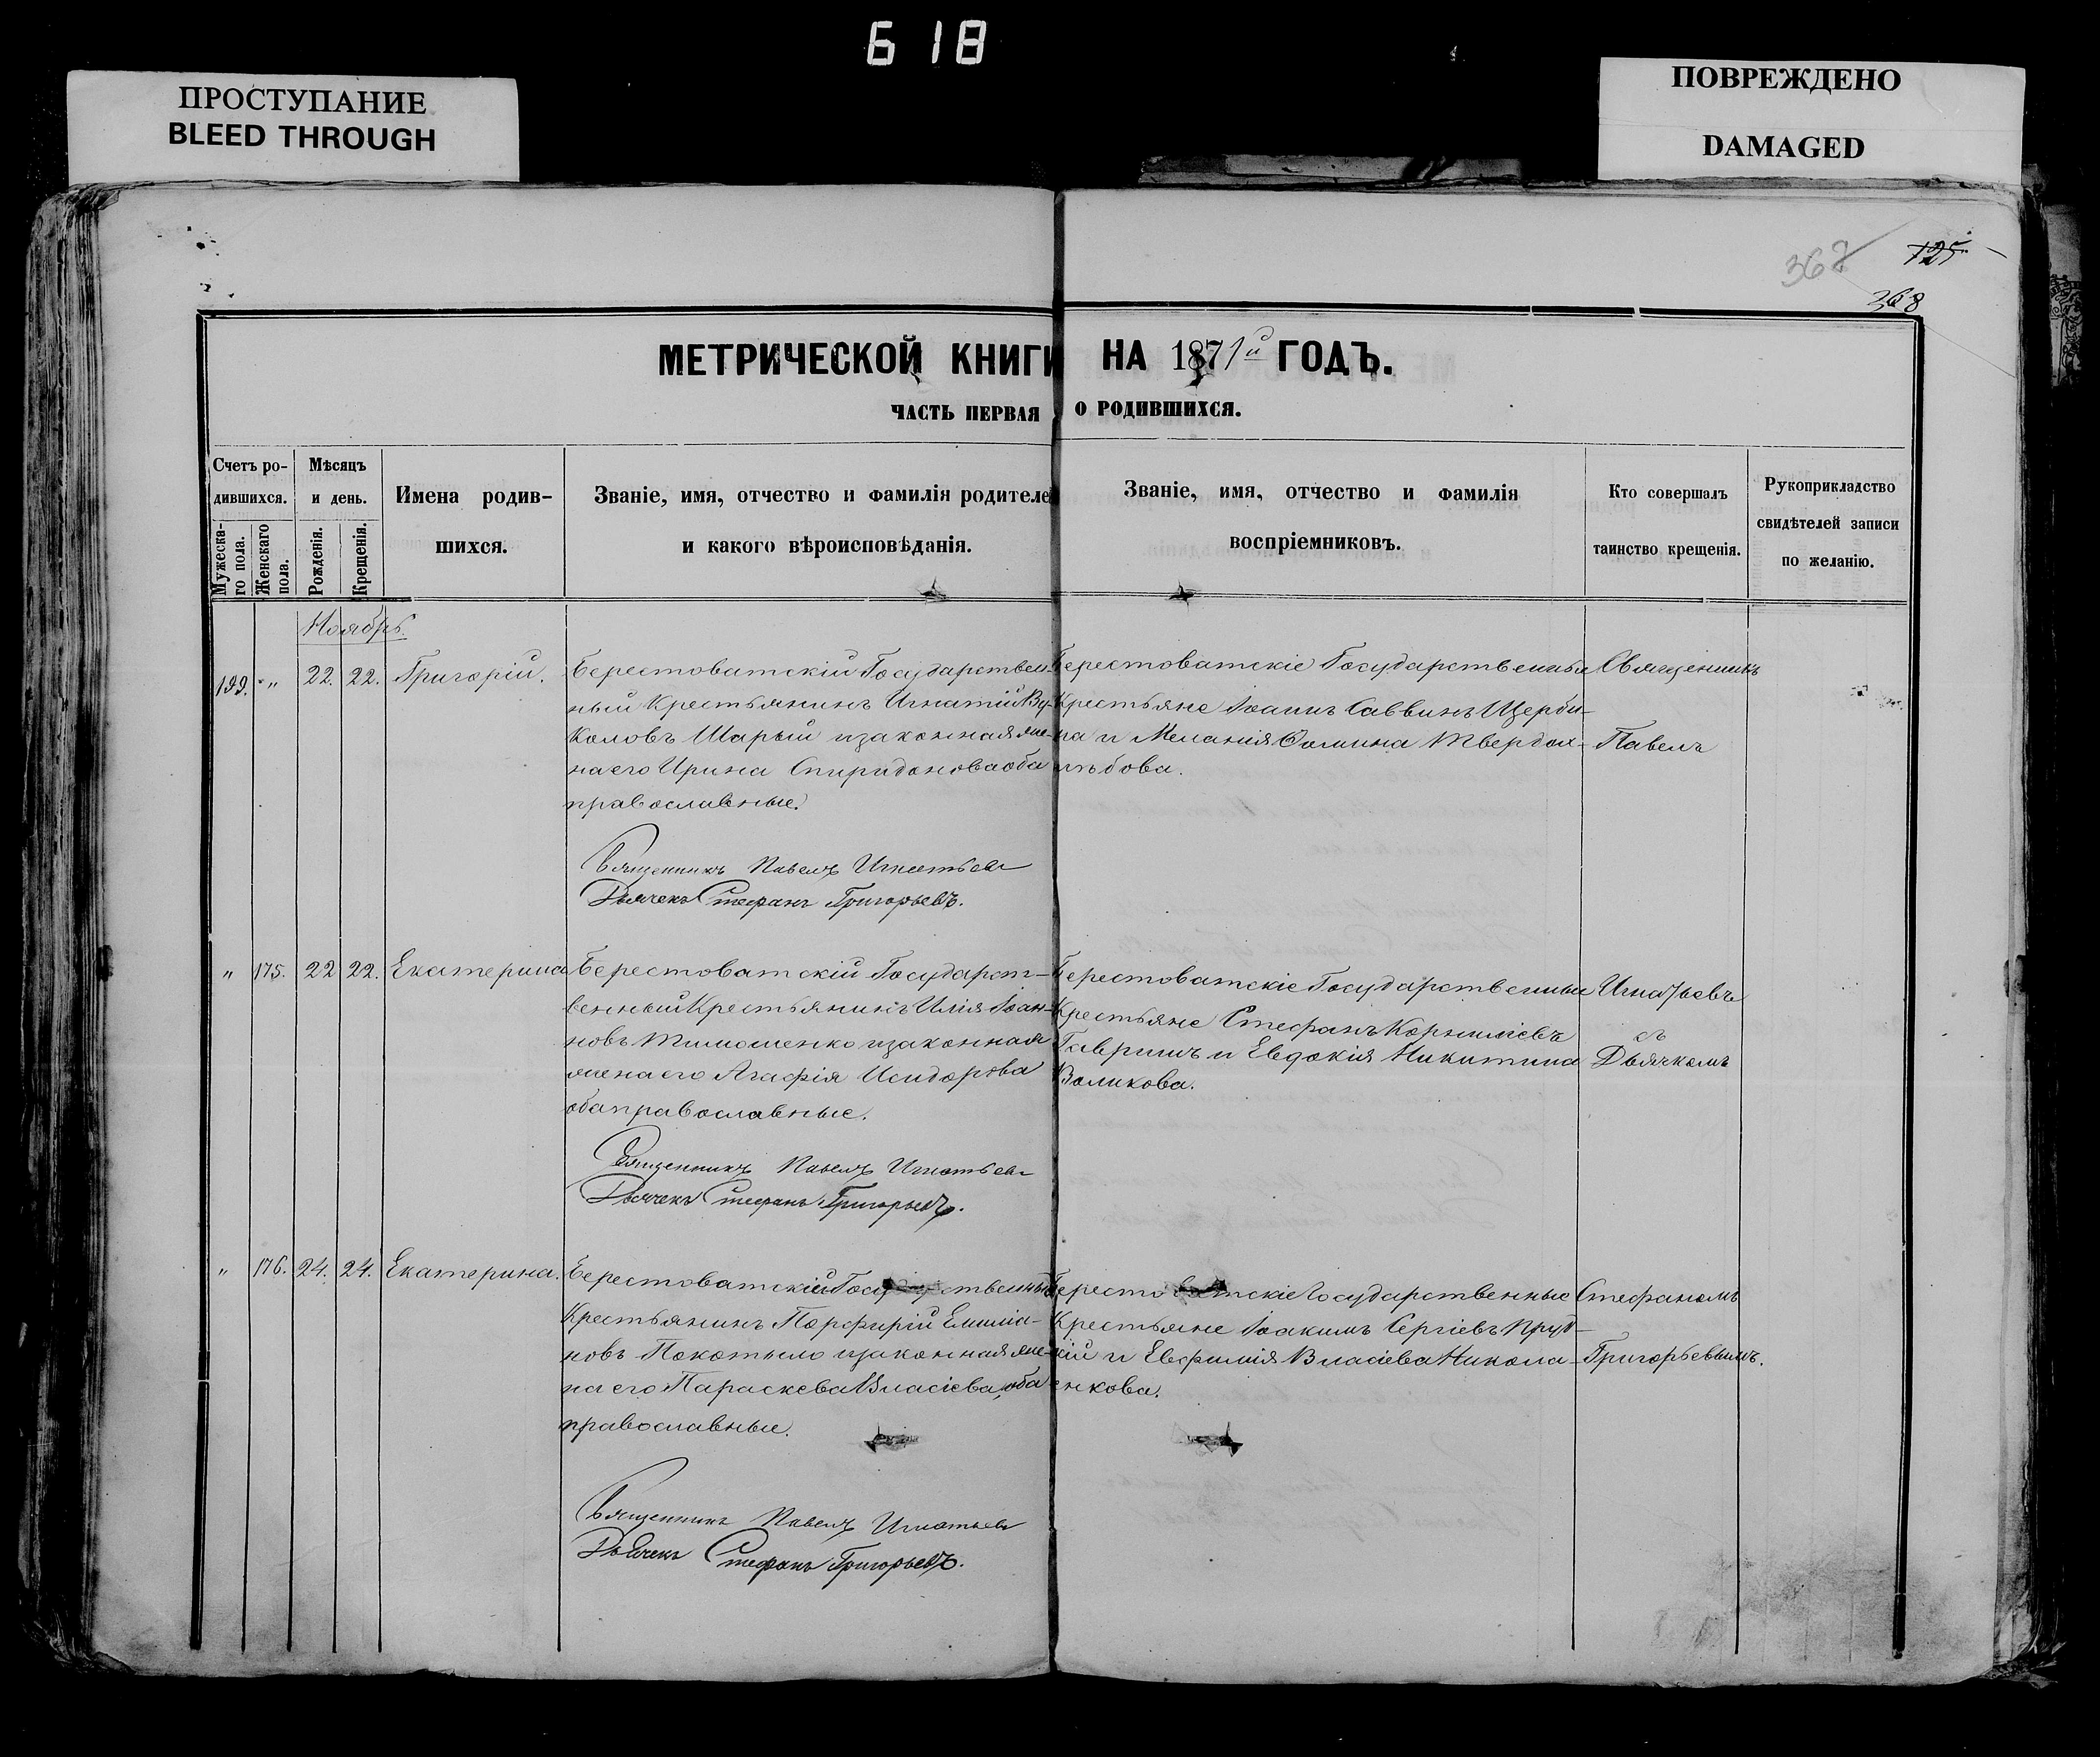 618
ПРОСТУПАНИЕ
BLEED THROUGH
ПОВРЕЖДЕНО
DAMAGED
367 125
368
МЕТРИЧЕСКОЙ КНИГИ НА 1871й ГОДЪ.
ЧАСТЬ ПЕРВАЯ О РОДИВШИХСЯ.
Счетъ ро-
дившихся.
Мужеска-
го пола.
Женскаго
пола.
Мѣсяцъ
и день.
Рожденія.
Крещенія.
Имена родив-
шихся.
Званіе, имя, отчество и фамилія родителе
и какого вѣроисповѣданія.
Званіе, имя, отчество и фамилія
воспріемниковъ.
Кто совершалъ
таинство крещенія.
Рукоприкладство
свидѣтелей записи
по желанію.
Ноябрь.
199. " 22. 22. Григорій.
Берестоватскій Государствен-
ный Крестьянинъ Игнатій Ву-
коловъ Шарый и законная же-
на его Ирина Спиридонова оба
православные.
Священникъ Павелъ Игнатьевъ
Дьячекъ Стефанъ Григорьевъ.
Берестоватскіе Государственные
Крестьяне Іоаннъ Саввинъ Щерби-
на и Меланія Фомина Твердох-
лѣбова.
Священникъ
Павелъ
" 175. 22 22. Екатерина
Берестоватскій Государст-
венный Крестьянинъ Илія Іоан-
новъ Тимошенко и законная
жена его Агафія Исидорова
оба православные.
Священникъ Павелъ Игнатьевъ
Дьячекъ Стефанъ Григорьевъ.
Берестоватскіе Государственные
Крестьяне Стефанъ Корниліевъ
Гавришъ и Евдокія Никитина
Воликова.
Игнатьевъ
съ
Дьячкомъ
" 176. 24. 24. Екатерина.
Берестоватскій Государственный
Крестьянинъ Порфирій Емиліа-
новъ Покотыло и законная же-
на его Параскева Власіева, оба
православные.
Священникъ Павелъ Игнатьевъ
Дьячекъ Стефанъ Григорьевъ.
Берестоватскіе Государственные
Крестьяне Іоакимъ Сергіевъ Пруд-
кій и Евфимія Власіева Никола-
енкова.
Стефаномъ
Григорьевымъ.